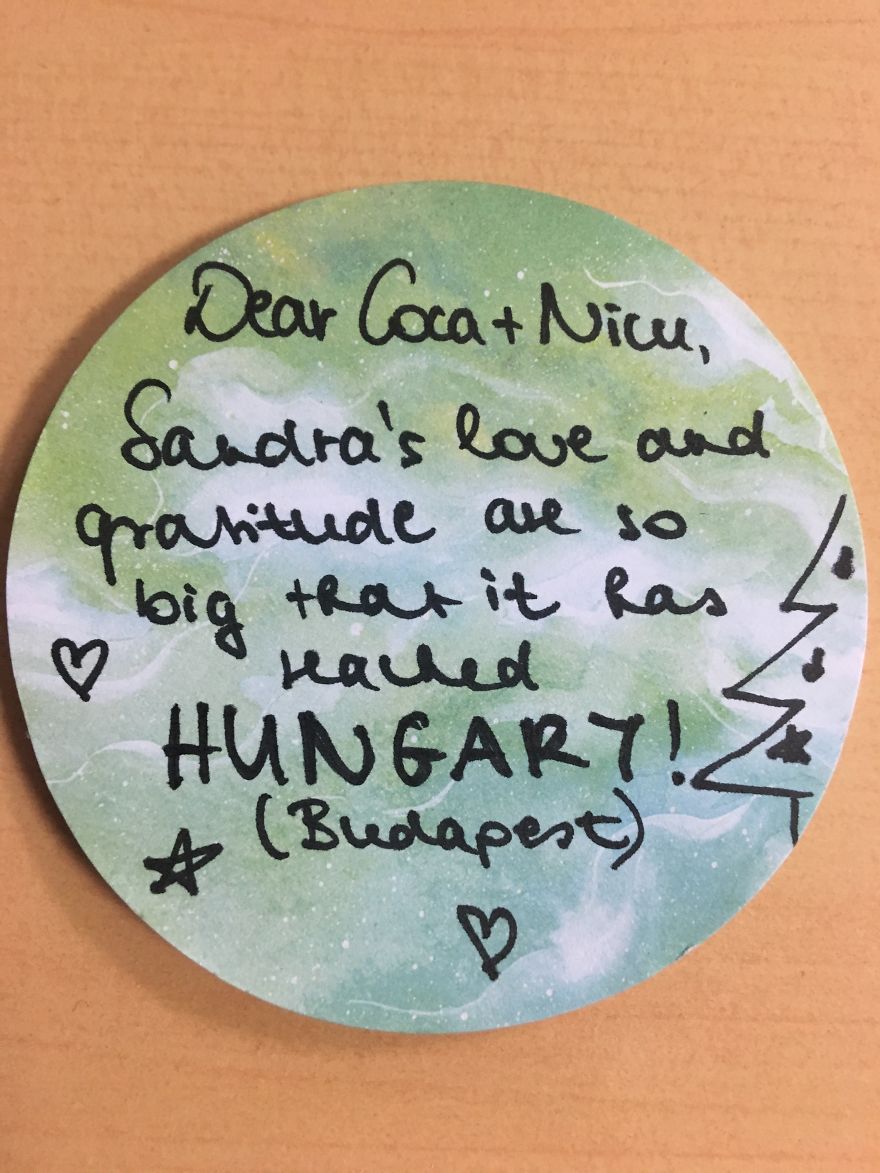 Dear Coca + Nicu,
Sandra's love and
gratitude are so
big that it has
reached
HUNGARY!
(Budapest)